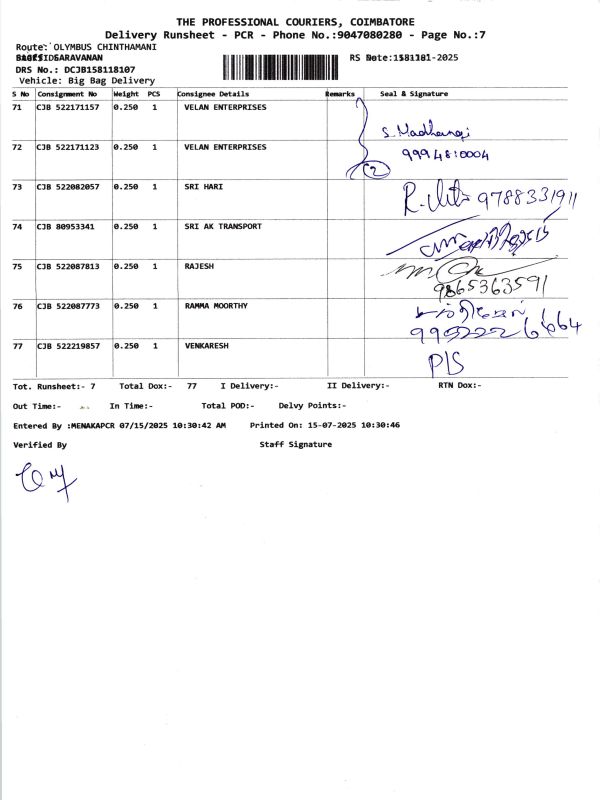 THE PROFESSIONAL COURIERS, COIMBATORE
Delivery Runsheet - PCR - Phone No.:9047080280 - Page No.:7
Route: OLYMBUS CHINTHAMANI
SARAVANAN
RS Date: -2025
DRS No.: DCJB158118107
Vehicle: Big Bag Delivery
S No Consignment No Weight PCS Consignee Details Remarks Seal & Signature
71 CJB 522171157 0.250 1 VELAN ENTERPRISES
S. Madhangi
72 CJB 522171123 0.250 1 VELAN ENTERPRISES
9994810004
2
73 CJB 522082057 0.250 1 SRI HARI 9788331911
74 CJB 80953341 0.250 1 SRI AK TRANSPORT
75 CJB 522087813 0.250 1 RAJESH
9865363591
76 CJB 522087773 0.250 1 RAMMA MOORTHY
77 CJB 522219857 0.250 1 VENKARESH P/S
Tot. Runsheet:- 7 Total Dox:- 77 I Delivery:- II Delivery:- RTN Dox:-
Out Time:- In Time:- Total POD:- Delvy Points:-
Entered By :MENAKAPCR 07/15/2025 10:30:42 AM Printed On: 15-07-2025 10:30:46
Verified By Staff Signature